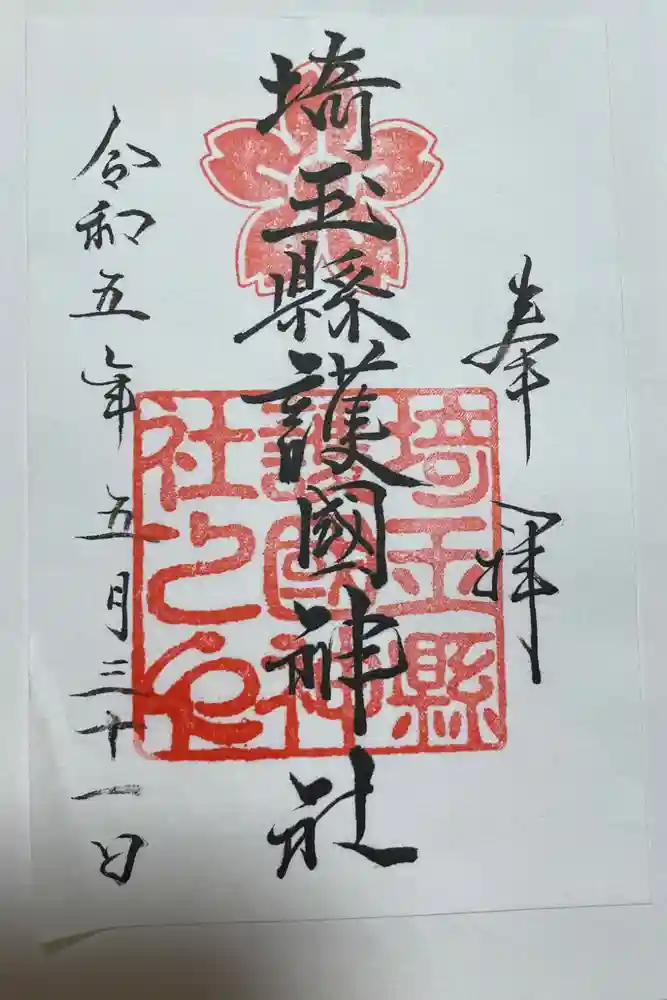 奉拝
埼玉縣護國神社
埼玉縣
護國神
社之印
令和五年五月三十一日